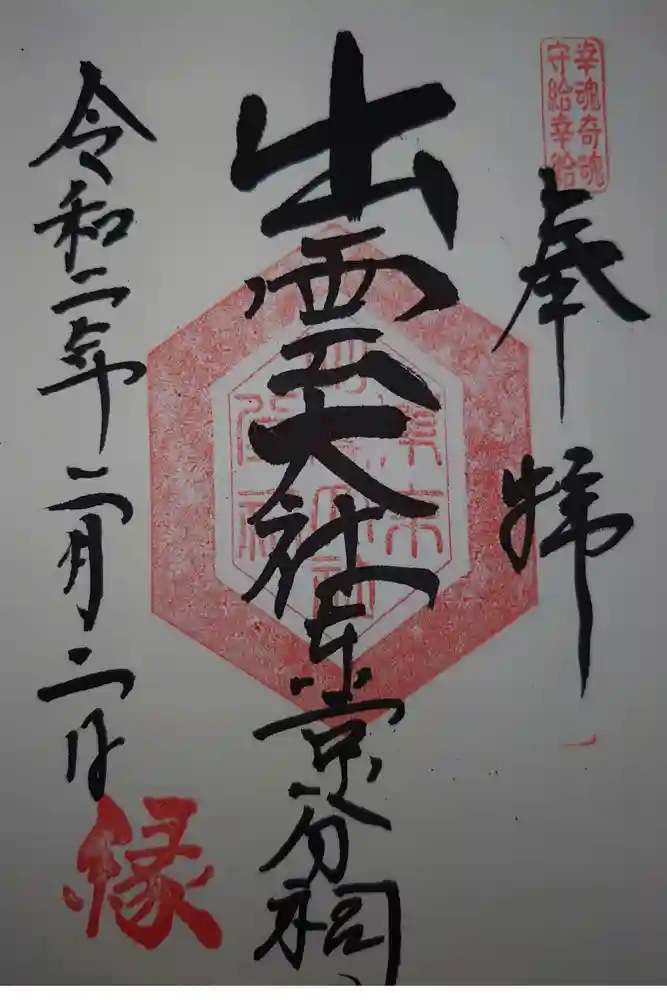 幸魂奇魂
守給幸給
奉拝
出雲大社東京分祠
令和二年二月二日
縁